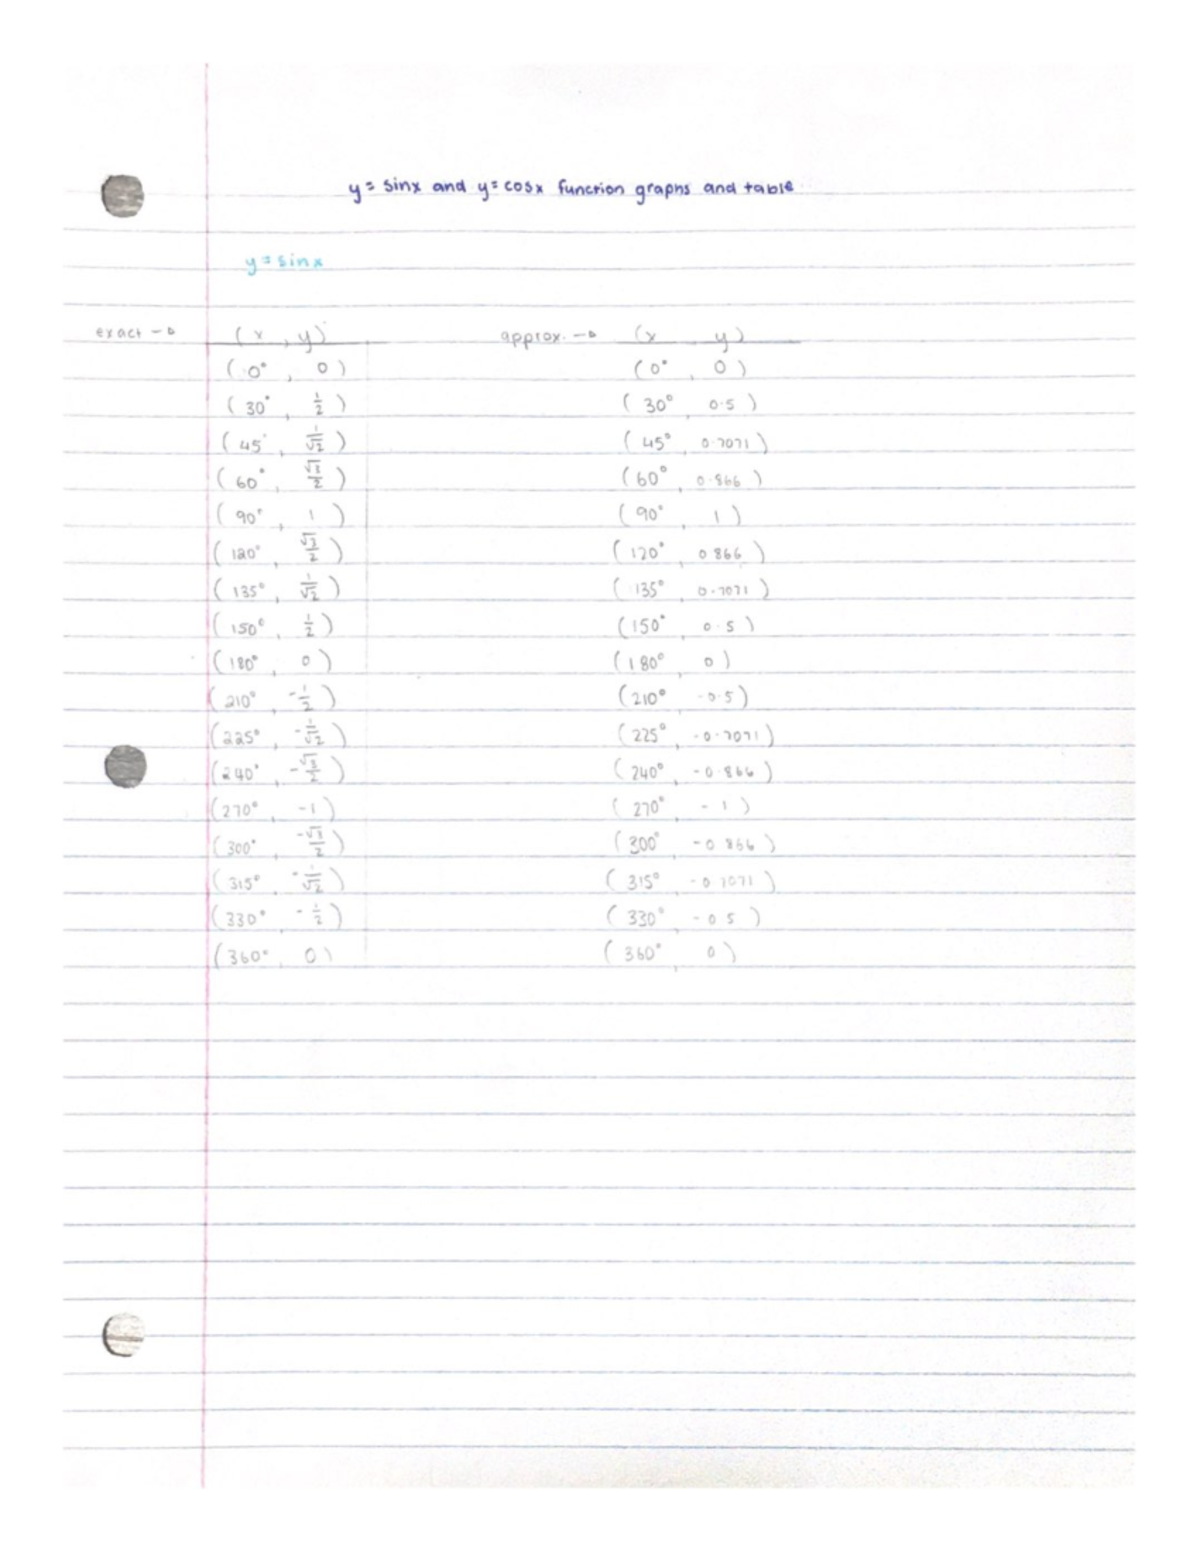 y = sinx and y = cosx function graphs and table
y = sinx
exact → (x , y) approx. → (x , y)
(0° , 0) (0° , 0)
(30° , 1/2) (30° , 0.5)
(45° , 1/√2) (45° , 0.7071)
(60° , √3/2) (60° , 0.866)
(90° , 1) (90° , 1)
(120° , √3/2) (120° , 0.866)
(135° , 1/√2) (135° , 0.7071)
(150° , 1/2) (150° , 0.5)
(180° , 0) (180° , 0)
(210° , -1/2) (210° , -0.5)
(225° , -1/√2) (225° , -0.7071)
(240° , -√3/2) (240° , -0.866)
(270° , -1) (270° , -1)
(300° , -√3/2) (300° , -0.866)
(315° , -1/√2) (315° , -0.7071)
(330° , -1/2) (330° , -0.5)
(360° , 0) (360° , 0)